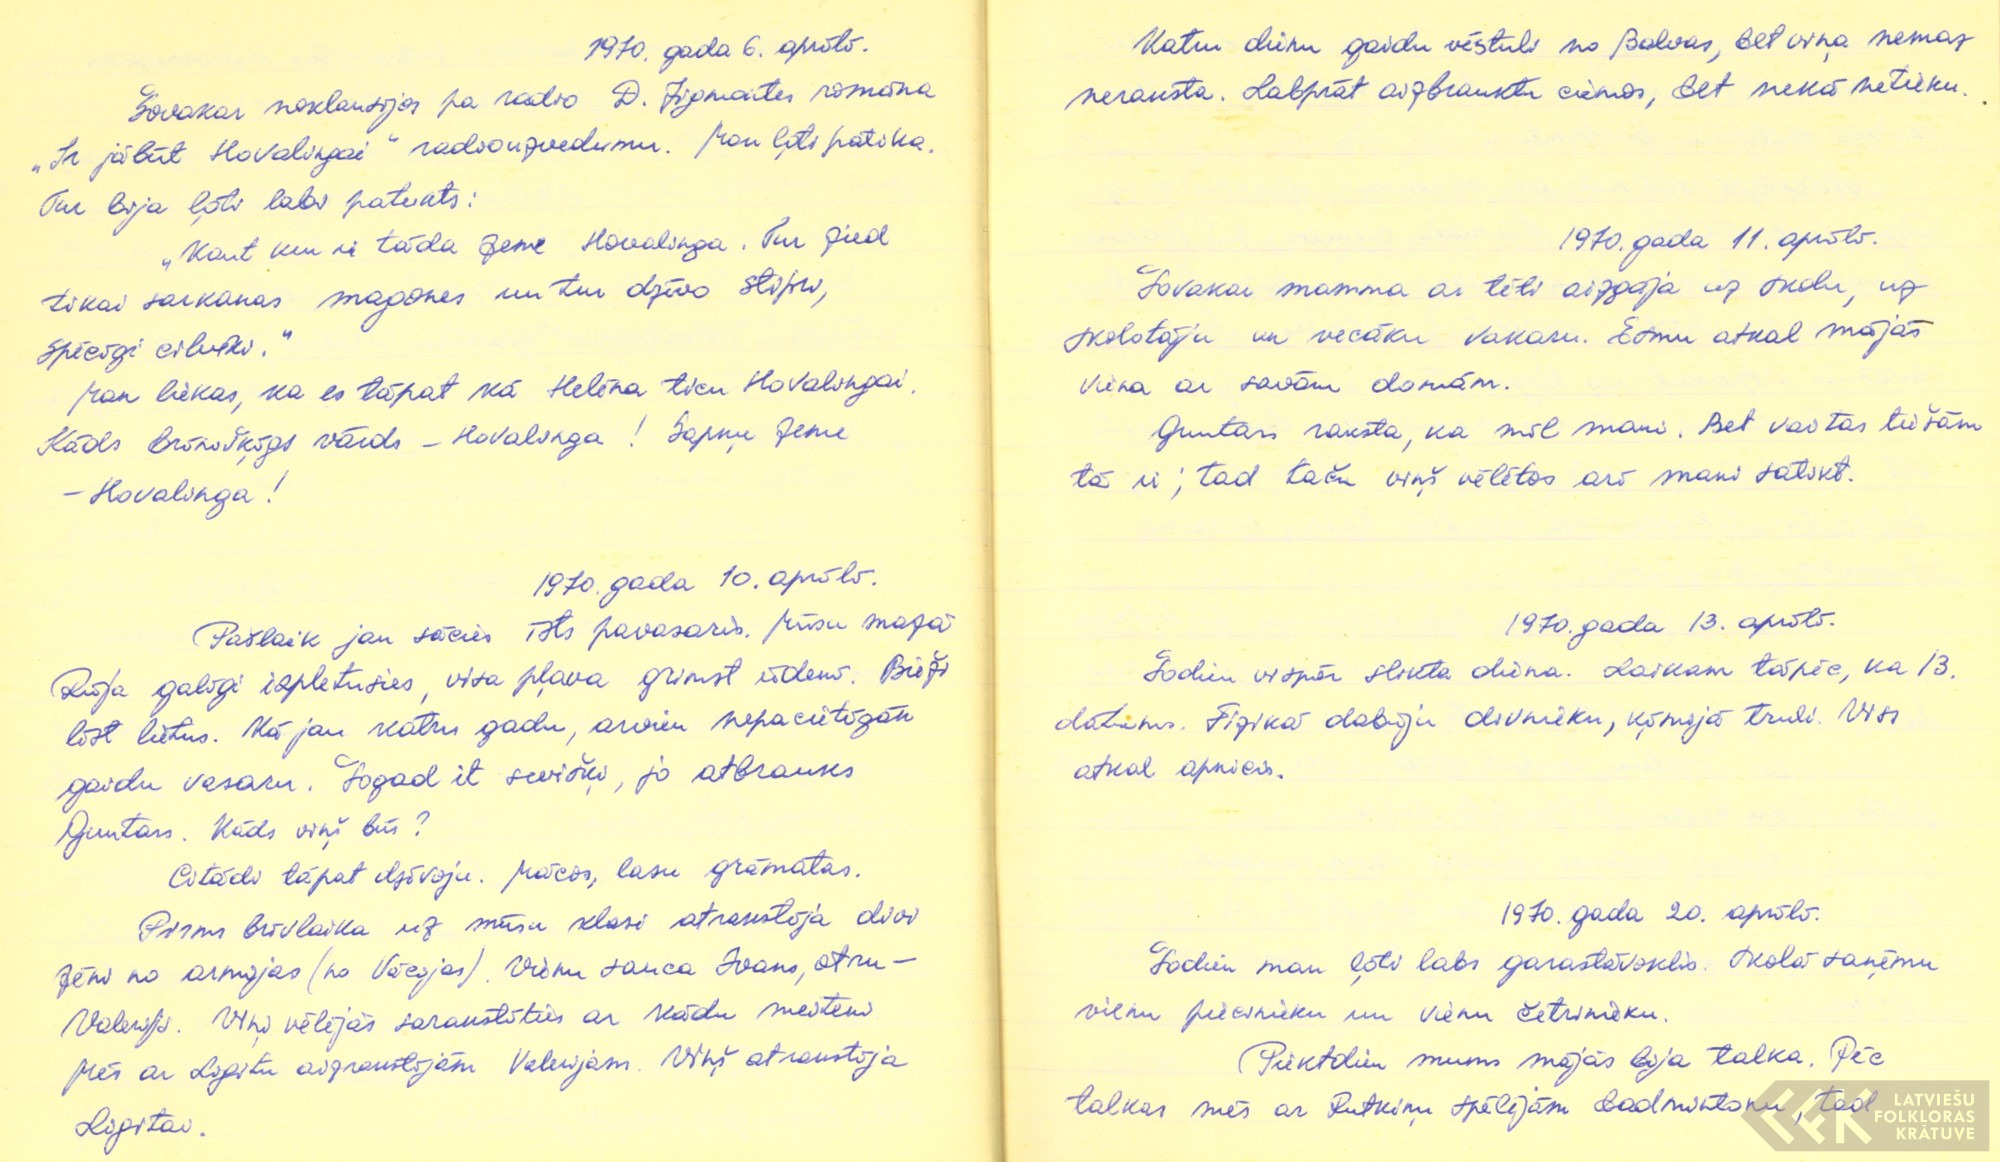 1970. gada 6. aprīlī.
Šovakar noklausījos pa radio D. Zigmontes romāna
„Ir jābūt Hovalingai“ radiouzvedumu. Man ļoti patika.
Tur bija ļoti labi pateikts:
„Kaut kur ir tāda zeme Hovalinga. Tur zied
tikai sarkanas magones un tur dzīvo stipri,
spēcīgi cilvēki.“
Man liekas, ka es tāpat kā Helēna ticu Hovalingai.
Kāds brīnišķīgs vārds – Hovalinga! Sapņu zeme
– Hovalinga!
1970. gada 10. aprīlī.
Pašlaik jau sācies īsts pavasaris. Mūsu mazā
Rūja galīgi izpletusies, visa pļava grimst ūdenī. Bieži
līst lietus. Kā jau katru gadu, arvien nepacietīgāk
gaidu vasaru. Šogad it sevišķi, jo atbrauks
Guntars. Kāds viņš būs?
Citādi tāpat dzīvoju. Mācos, lasu grāmatas.
Pirms brīvlaika uz mūsu klasi atrakstīja divi
zēni no armijas (no Vācijas). Vienu sauca Ivans, otru –
Valerijs. Viņi vēlējās sarakstīties ar kādu meiteni
Mēs ar Ligitu aizrakstījām Valerijam. Viņš atrakstīja
Ligitai.
Katru dienu gaidu vēstuli no Baibas, bet viņa nemaz
neraksta. Labprāt aizbrauktu ciemos, bet nekā netieku.
1970. gada 11. aprīlī.
Šovakar mamma ar tēti aizgāja uz skolu, uz
skolotāju un vecāku vakaru. Esmu atkal mājās
viena ar savām domām.
Guntars raksta, ka mīl mani. Bet vai tas tiešām
tā ir; tad taču viņš vēlētos arī mani satikt.
1970. gada 13. aprīlī.
Šodien vispār slikta diena. Laikam tāpēc, ka 13.
datums. Fizikā dabūju divnieku, ķīmijā truli. Viss
atkal apnicis.
1970. gada 20. aprīlī.
Šodien man ļoti labs garastāvoklis. Skolā saņēmu
vienu piecinieku un vienu četrinieku.
Piektdien mums mājās bija talka. Pēc
talkas mēs ar Rutkiņu spēlējām badmintonu, tad
LATVIEŠU
FOLKLORAS
KRĀTUVE